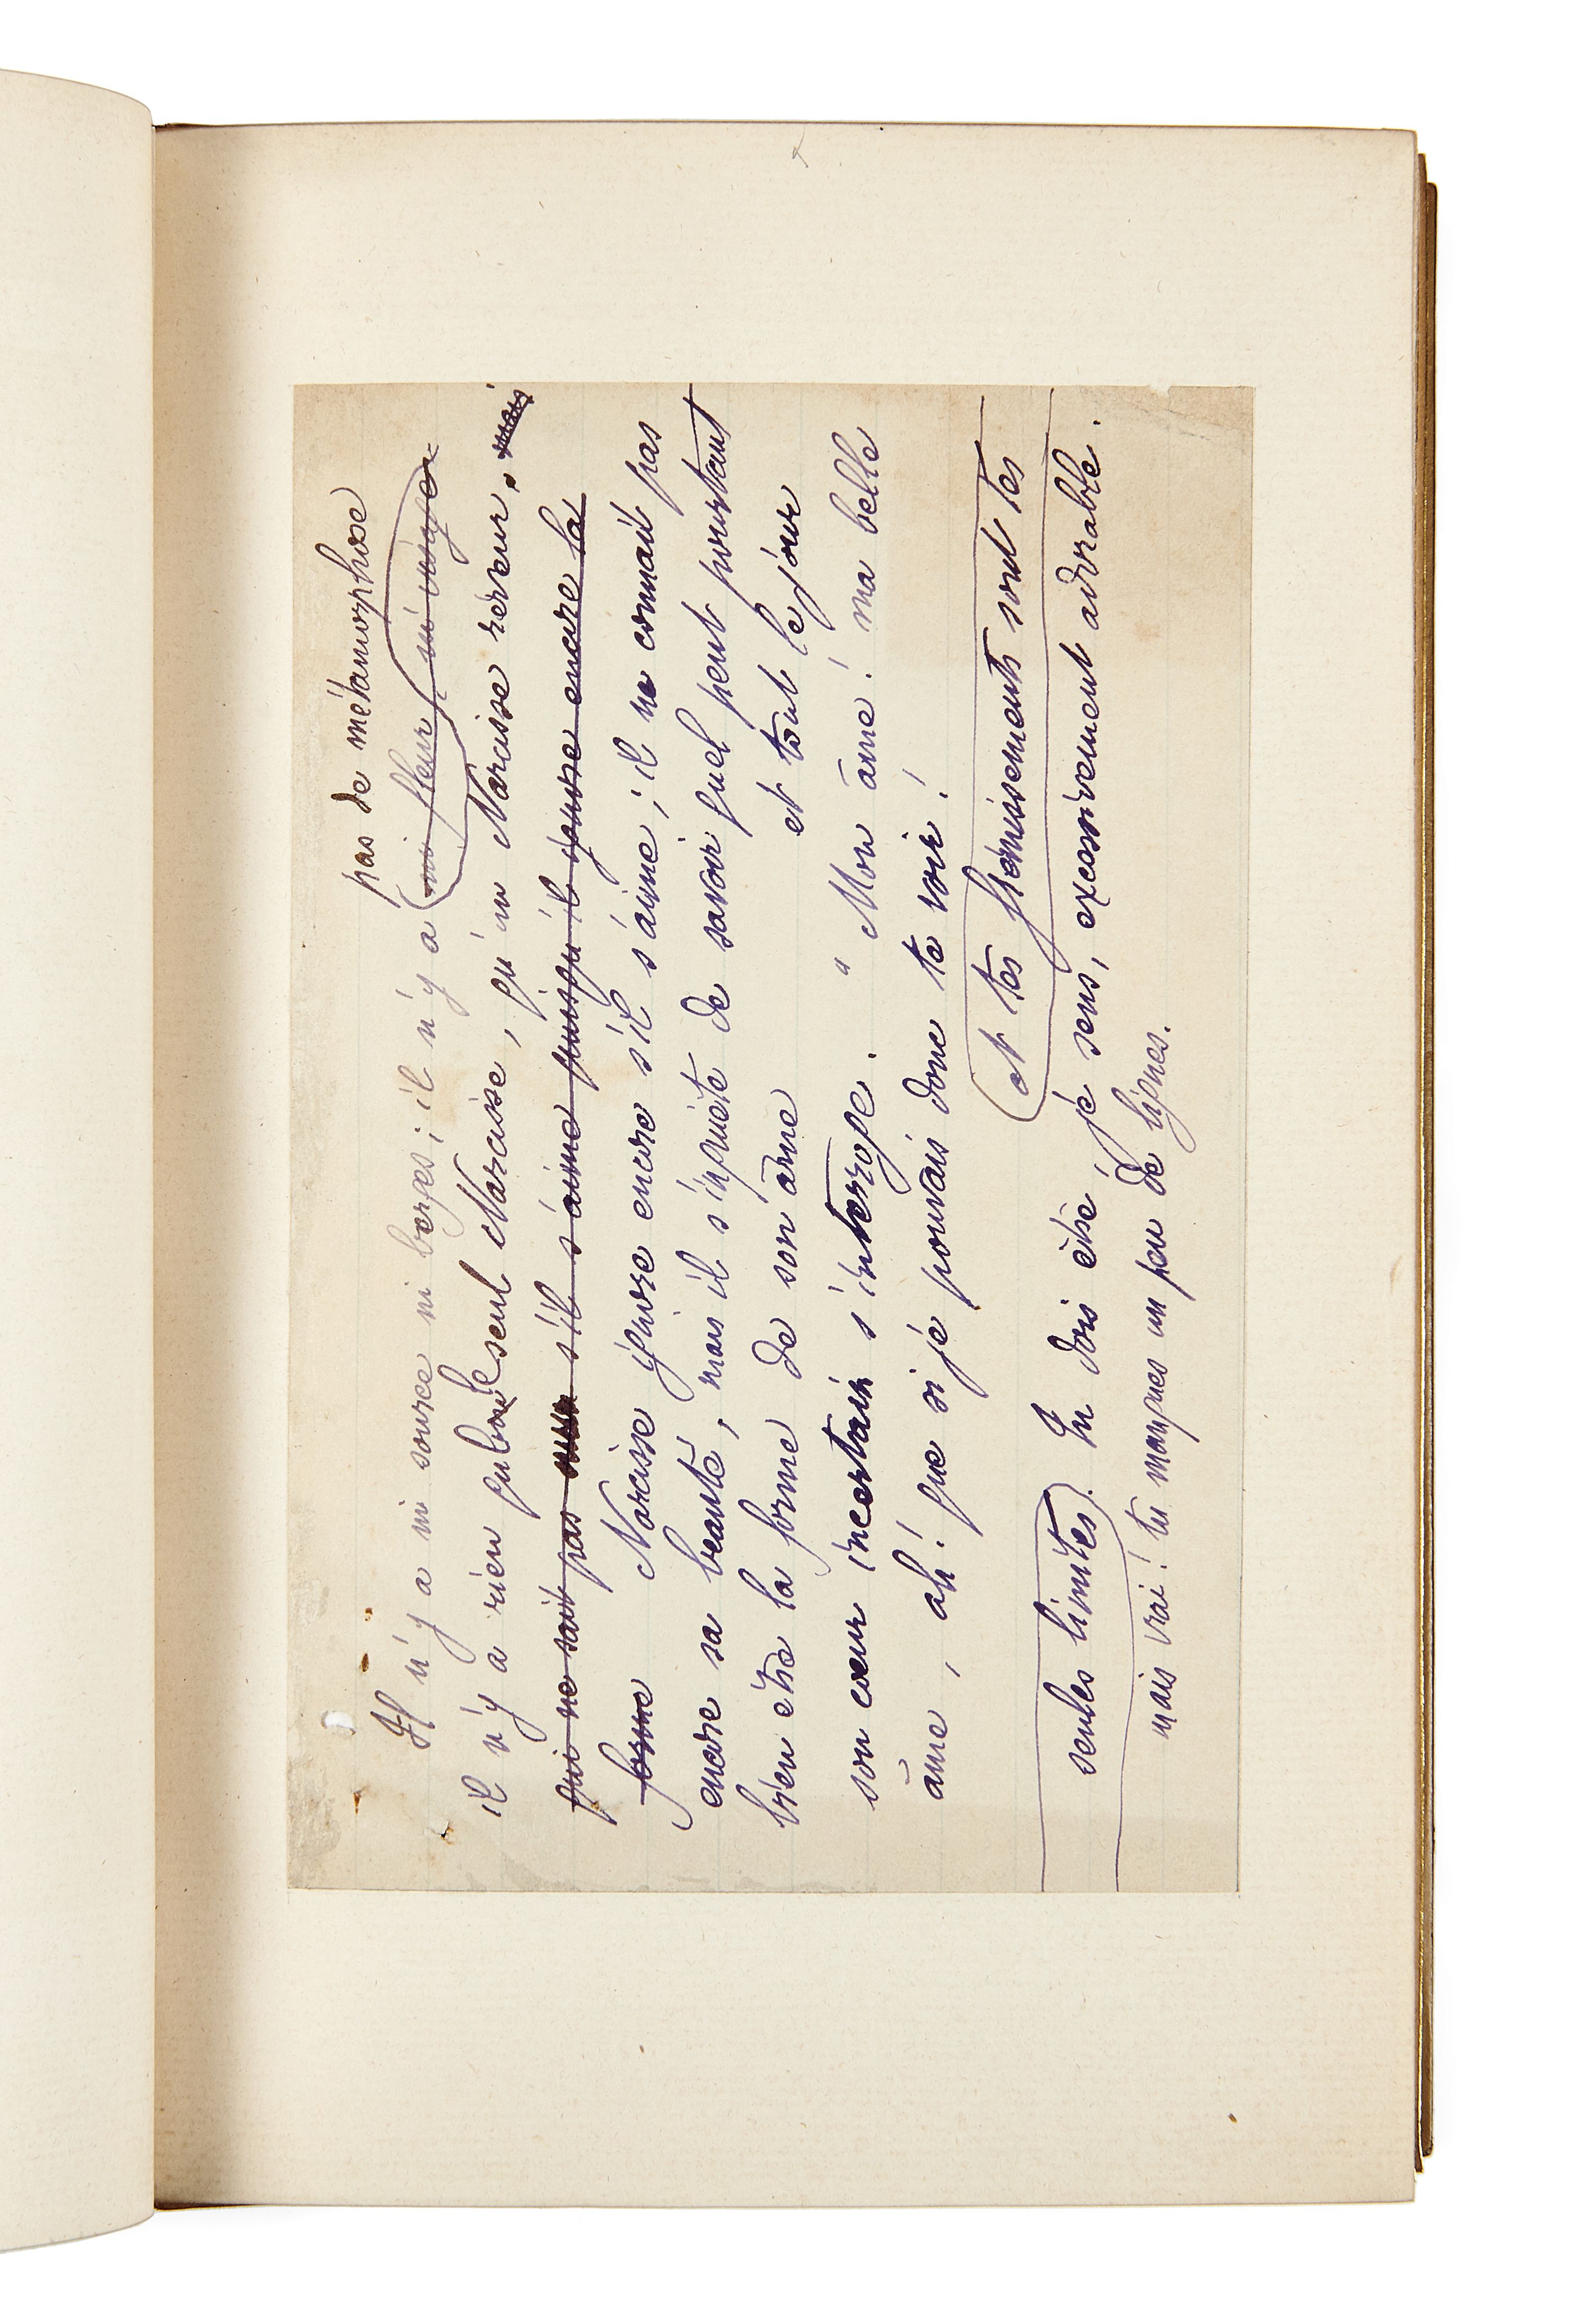 pas de métamorphose
Il n'y a ni source ni berges ; il n'y a (ni fleur) ni visage
il n'y a rien que le seul Narcisse, qu'un Narcisse rêveur, mais
qui ne sait pas s'il s'aime puisqu'il ignore encore la
forme Narcisse ignore encore s'il s'aime ; il ne connaît pas
encore sa beauté, mais il s'inquiète de savoir quel peut pourtant
bien être la forme de son âme et tout le jour
son cœur incertain s'interroge. " Mon âme ! ma belle
âme, ah ! que si je pouvais donc te voir !
(et tes frémissements sont tes
seules limites). Tu dois être, je sens, excessivement adorable.
mais vrai ! tu manques un peu de lignes.